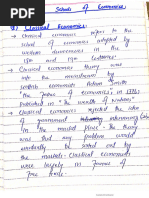 Schools of Economics
① Classical Economics:
→ Classical economics refers to the
school of economics adopted by
western democracies in the
18th and 19th Centuries.
→ Classical economics theory was
into the mainstream by
Adam Smith's
of economics" in 1776,
Published in "The wealth of nations"
→ Classical economics rejected the idea
of government
in the market place The theory
was that any problem would
be sorted out by
the markets. Classical economists
were largely in favour of
free trade.